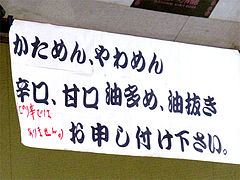 かためん、やわめん
辛口、甘口 油多め、油抜き
ピリ辛では
ありません。
お申し付け下さい。